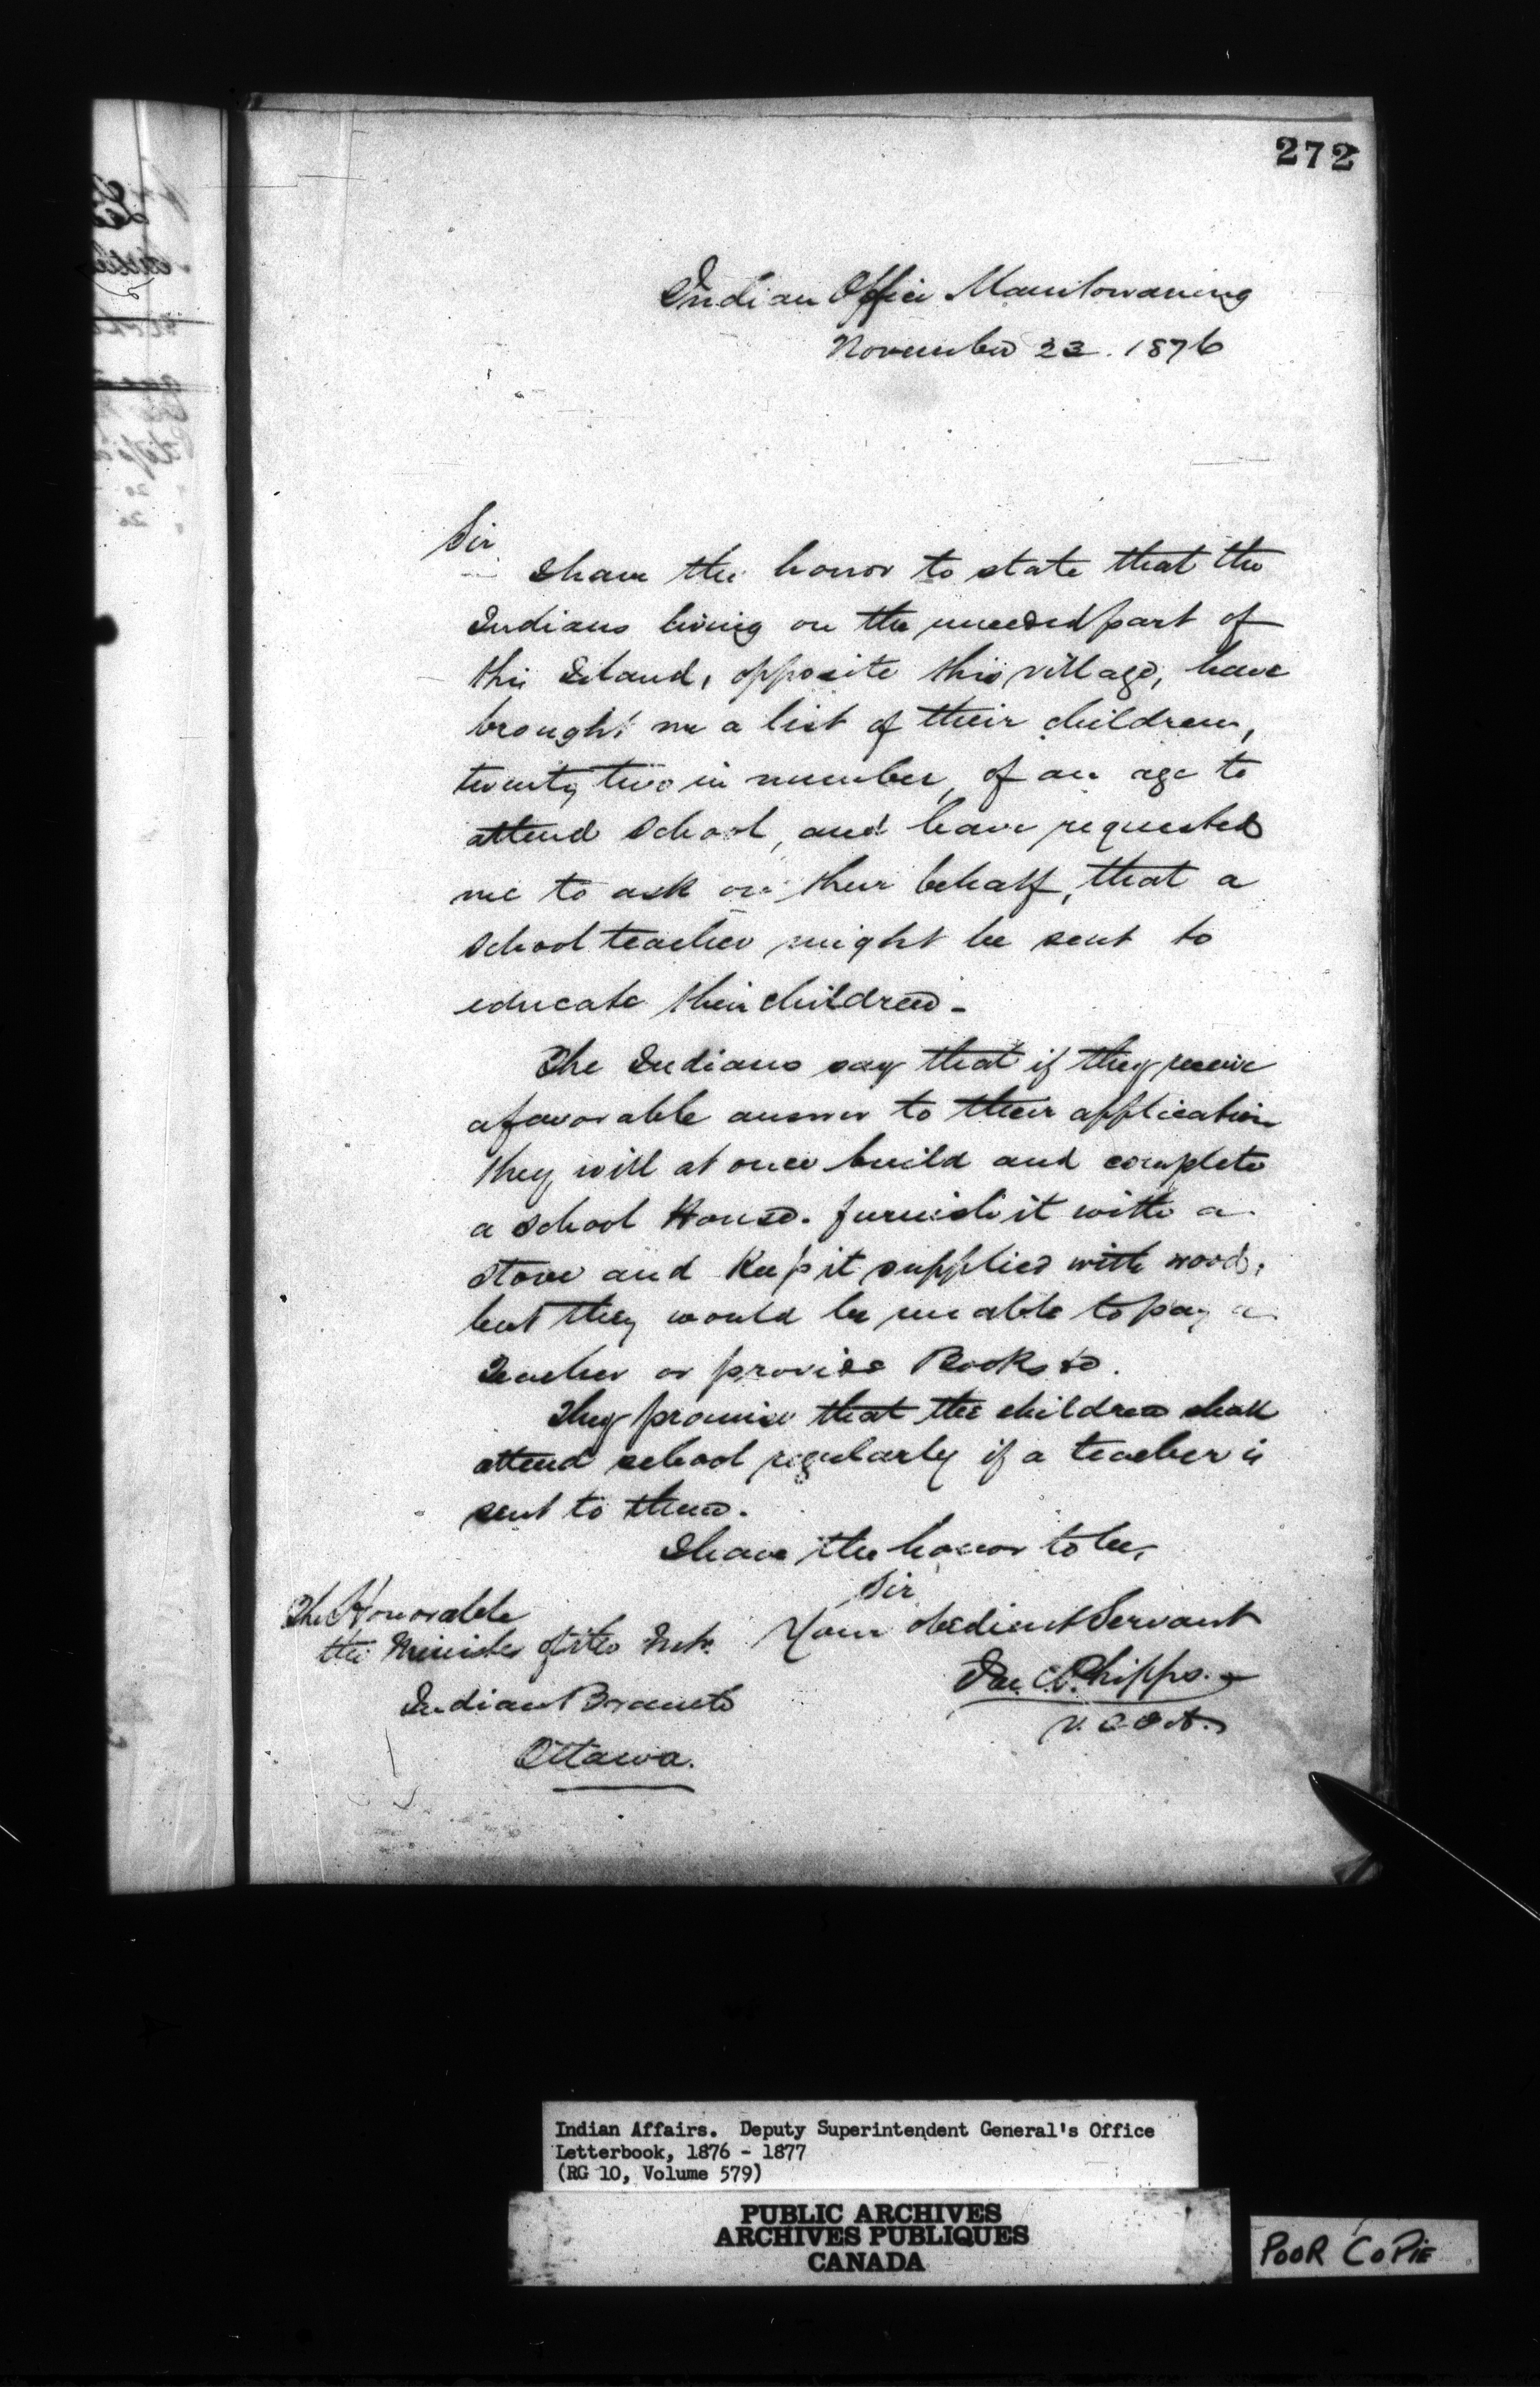 272
Indian Office Manitowaning
November 23. 1876
Sir
I have the honor to state that the
Indians living on the unceded part of
this Island, opposite this village, have
brought me a list of their children,
twenty two in number, of an age to
attend School, and have requested
me to ask on their behalf, that a
School teacher might be sent to
educate their children -
The Indians say that if they receive
a favorable answer to their application
they will at once build and complete
a School House. furnish it with a
stove and keep it supplied with wood,
but they would be unable to pay a
Teacher or provide Books &c.
They promise that the children shall
attend school regularly if a teacher is
sent to them.
I have the honor to be,
Sir
Your obedient Servant
Jas. C. Phipps.
V.S.I.A.
The Honorable
the Minister of the Intr.
Indian Branch
Ottawa.
Indian Affairs. Deputy Superintendent General's Office
Letterbook, 1876 - 1877
(RG 10, Volume 579)
PUBLIC ARCHIVES
ARCHIVES PUBLIQUES
CANADA
POOR COPIE